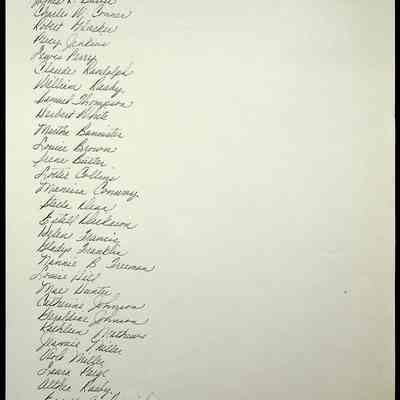 Charles W. Conner
Robert
Percy Jenkins
Lewis Perry
Claude Randolph
William Rasby
Samuel Thompson
Herbert White
Bannister
Louise Brown
Irene Butler
Lottie Collins
Conway
Stella Dean
Estell Dickason
Helen Francis
Gladys Franklin
Nannie B. Freeman
Louise Hill
Mae Hunter
Catherine Johnson
Geraldine Johnson
Kathleen Mathews
Jeannie Miller
Viola Miller
Laura Paige
Althea Rasby